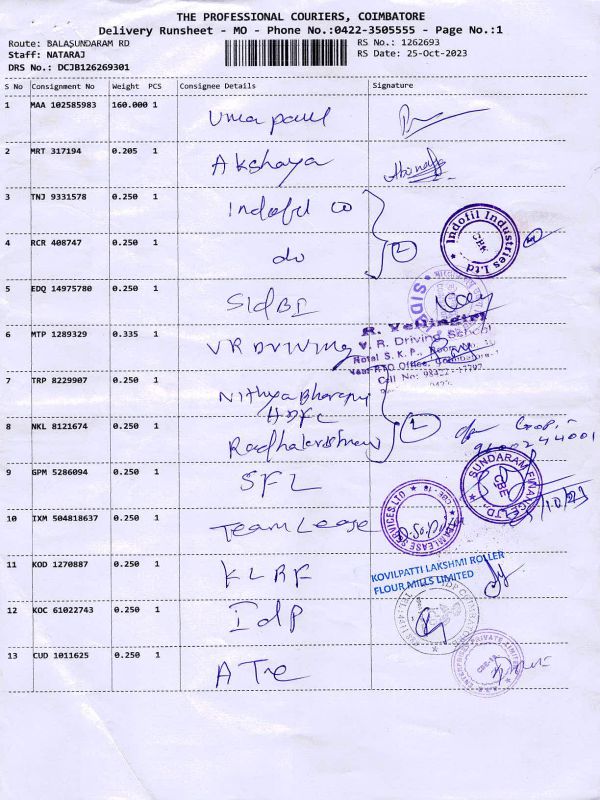 THE PROFESSIONAL COURIERS, COIMBATORE
Delivery Runsheet - MO - Phone No.:0422-3505555 - Page No.:1
Route: BALASUNDARAM RD
RS No.: 1262693
Staff: NATARAJ
RS Date: 25-Oct-2023
DRS No.: DCJB126269301
S No Consignment No Weight PCS Consignee Details Signature
1 MAA 102585983 160.000 1 Uma paul
2 MRT 317194 0.205 1 Akshaya
3 TNJ 9331578 0.250 1 Indofil co
Indofil Industries Ltd
CBE
4 RCR 408747 0.250 1 do 2
5 EDQ 14975780 0.250 1 SIDBI
SIDBI
6 MTP 1289329 0.335 1 VR Driving
R. Vellingiri
V. R. Driving School
Hotel S. K. P.,
Near RTO Office,
Cell No: 98422
7 TRP 8229907 0.250 1 Nithya Bharani
HDFC
8 NKL 8121674 0.250 1 Radhakrishnan 2
9600244001
9 GPM 5286094 0.250 1 SFL
SUNDARAM FINANCE LTD
CBE
10 IXM 504818637 0.250 1 Team Lease
TEAM LEASE SERVICES LTD
CBE - 18
11 KOD 1270887 0.250 1 KLRF
KOVILPATTI LAKSHMI ROLLER
FLOUR MILLS LIMITED
12 KOC 61022743 0.250 1 Idp
13 CUD 1011625 0.250 1 ATE
ENTERPRISES PRIVATE LIMITED
CBE-18